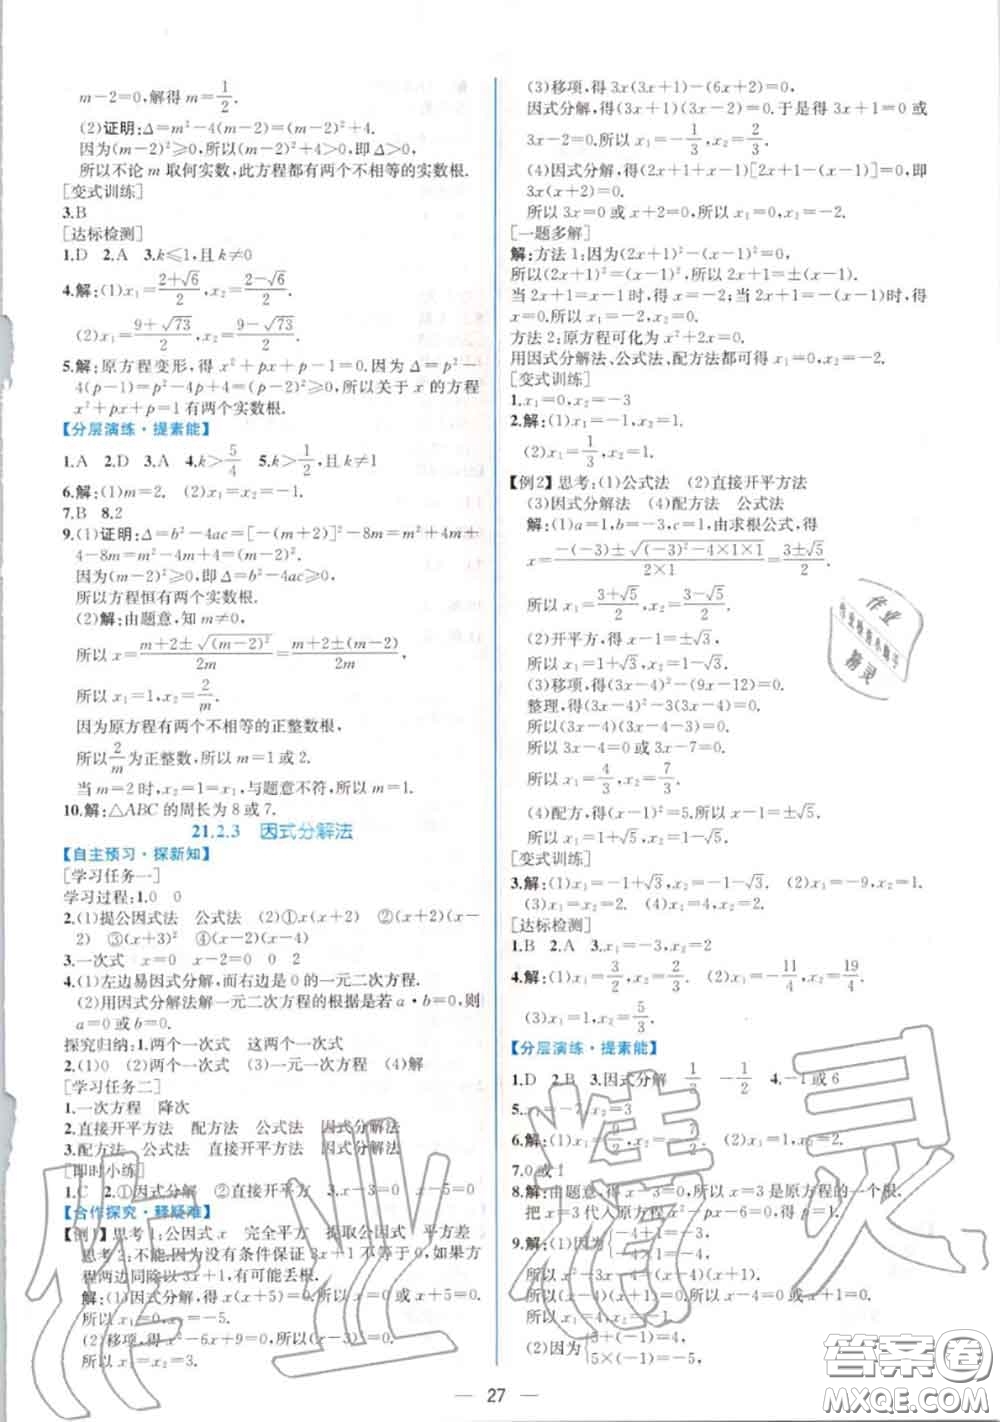 m-2=0,解得 m=1/2.
(2)证明:Δ=m²-4(m-2)=(m-2)²+4.
因为(m-2)²≥0,所以(m-2)²+4>0,即Δ>0,
所以不论 m 取何实数,此方程都有两个不相等的实数根.
[变式训练]
3.B
[达标检测]
1.D 2.A 3.k≤1,且 k≠0
4.解:(1)x₁=(2+√6)/2,x₂=(2-√6)/2.
(2)x₁=(9+√73)/2,x₂=(9-√73)/2.
5.解:原方程变形,得 x²+px+p-1=0.因为 Δ=p²-
4(p-1)=p²-4p+4=(p-2)²≥0,所以关于 x 的方程
x²+px+p=1 有两个实数根.
【分层演练·提素能】
1.A 2.D 3.A 4.k>5/4 5.k>1/2,且 k≠1
6.解:(1)m=2. (2)x₁=x₂=-1.
7.B 8.2
9.(1)证明:Δ=b²-4ac=[-(m+2)]²-8m=m²+4m+
4-8m=m²-4m+4=(m-2)².
因为(m-2)²≥0,即 b²-4ac≥0.
所以方程恒有两个实数根.
(2)解:由题意,知 m≠0,
所以 x=(m+2±√(m-2)²)/2m=(m+2±(m-2))/2m.
所以 x₁=1,x₂=2/m.
因为原方程有两个不相等的正整数根,
所以2/m为正整数,所以 m=1或2.
当 m=2时,x₂=1=x₁,与题意不符,所以 m=1.
10.解:△ABC的周长为8或7.
21.2.3 因式分解法
【自主预习·探新知】
[学习任务一]
学习过程:1.0 0
2.(1)提公因式法 公式法 (2)①x(x+2) ②(x+2)(x-
2) ③(x+3)² ④(x-2)(x-4)
3.一次式 x 0 0 0 2
4.(1)左边易因式分解,而右边是0的一元二次方程.
(2)用因式分解法解一元二次方程的根据是若 a·b=0,则
a=0 或 b=0.
探究归纳:1.两个一次式 这两个一次式
2.(1)0 (2)两个一次方程 (3)一元一次方程 (4)解
[学习任务二]
1.一次方程 降次
2.直接开平方法 配方法 公式法 因式分解法
3.配方法 公式法 直接开平方法 因式分解法
[即时小练]
1.C 2.①因式分解 ②直接开平方 3.x-3=0 x-5=0
【合作探究·释疑难】
【例1】思考1:公因式 x 完全平方 提取公因式 平方差
思考2:不能,因为没有条件保证3x+1不等于0,如果方
程两边同除以3x+1,有可能丢根.
解:(1)因式分解,得 x(x+5)=0,所以 x=0或 x+5=0.
所以 x₁=0,x₂=-5.
(2)移项,得 x²-6x+9=0,所以(x-3)²=0.
所以 x₁=x₂=3.
(3)移项,得3x(3x+1)-(6x+2)=0.
因式分解,得(3x+1)(3x-2)=0.于是得3x+1=0或
3x-2=0.所以 x₁=-1/3,x₂=2/3.
(4)因式分解,得(2x+1+x-1)[2x+1-(x-1)]=0,即
3x(x+2)=0.
所以3x=0或 x+2=0,所以 x₁=0,x₂=-2.
[一题多解]
解:方法1:因为(2x+1)²-(x-1)²=0,
所以(2x+1)²=(x-1)²,所以2x+1=±(x-1).
当2x+1=x-1时,得 x=-2;当2x+1=-(x-1)时,得
x=0.所以 x₁=-2,x₂=0.
方法2:原方程可化为 x²+2x=0.
用因式分解法、公式法、配方法都可得 x₁=0,x₂=-2.
[变式训练]
1.x₁=0,x₂=-3
2.解:(1)x₁=x₂=1.
(2)x₁=1/3,x₂=1.
【例2】思考:(1)公式法 (2)直接开平方法
(3)因式分解法 (4)配方法 公式法
解:(1)a=1,b=-3,c=1,由求根公式,得
x=(-(-3)±√((-3)²-4×1×1))/(2×1)=(3±√5)/2.
所以 x₁=(3+√5)/2,x₂=(3-√5)/2.
(2)开平方,得 x-1=±√3,
所以 x₁=1+√3,x₂=1-√3.
(3)移项,得(3x-4)²-(9x-12)=0.
整理,得(3x-4)²-3(3x-4)=0.
所以(3x-4)(3x-4-3)=0.
所以3x-4=0或3x-7=0.
所以 x₁=4/3,x₂=7/3.
(4)配方,得(x-1)²=5.所以 x-1=±√5.
所以 x₁=1+√5,x₂=1-√5.
[变式训练]
3.解:(1)x₁=-1+√3,x₂=-1-√3. (2)x₁=-9,x₂=1.
(3)x₁=x₂=2. (4)x₁=0,x₂=6.
[达标检测]
1.B 2.A 3.x₁=-3,x₂=2
4.解:(1)x₁=3/2,x₂=5/2. (2)x₁=-11/4,x₂=19/4.
(3)x₁=1,x₂=5/3.
【分层演练·提素能】
1.D 2.B 3.因式分解 1/3 -1/2 4.-1或6
7.0或1
8.解:由题意,得 x=3是原方程的一个根.
27
作业
作业检查小助手
精灵
作业精灵
答案圈
MXQE.COM